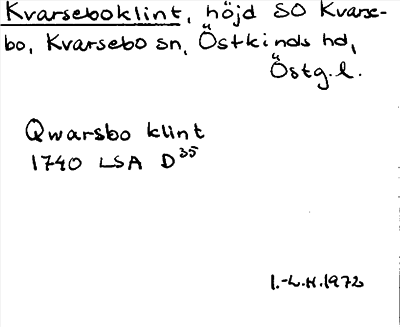 Kvarseboklint, höjd SO Kvarse-
bo, Kvarsebo sn, Östkinds hd,
Östg.l.
Qwarsbo klint
1740 LSA D35
I.-L.H.1972